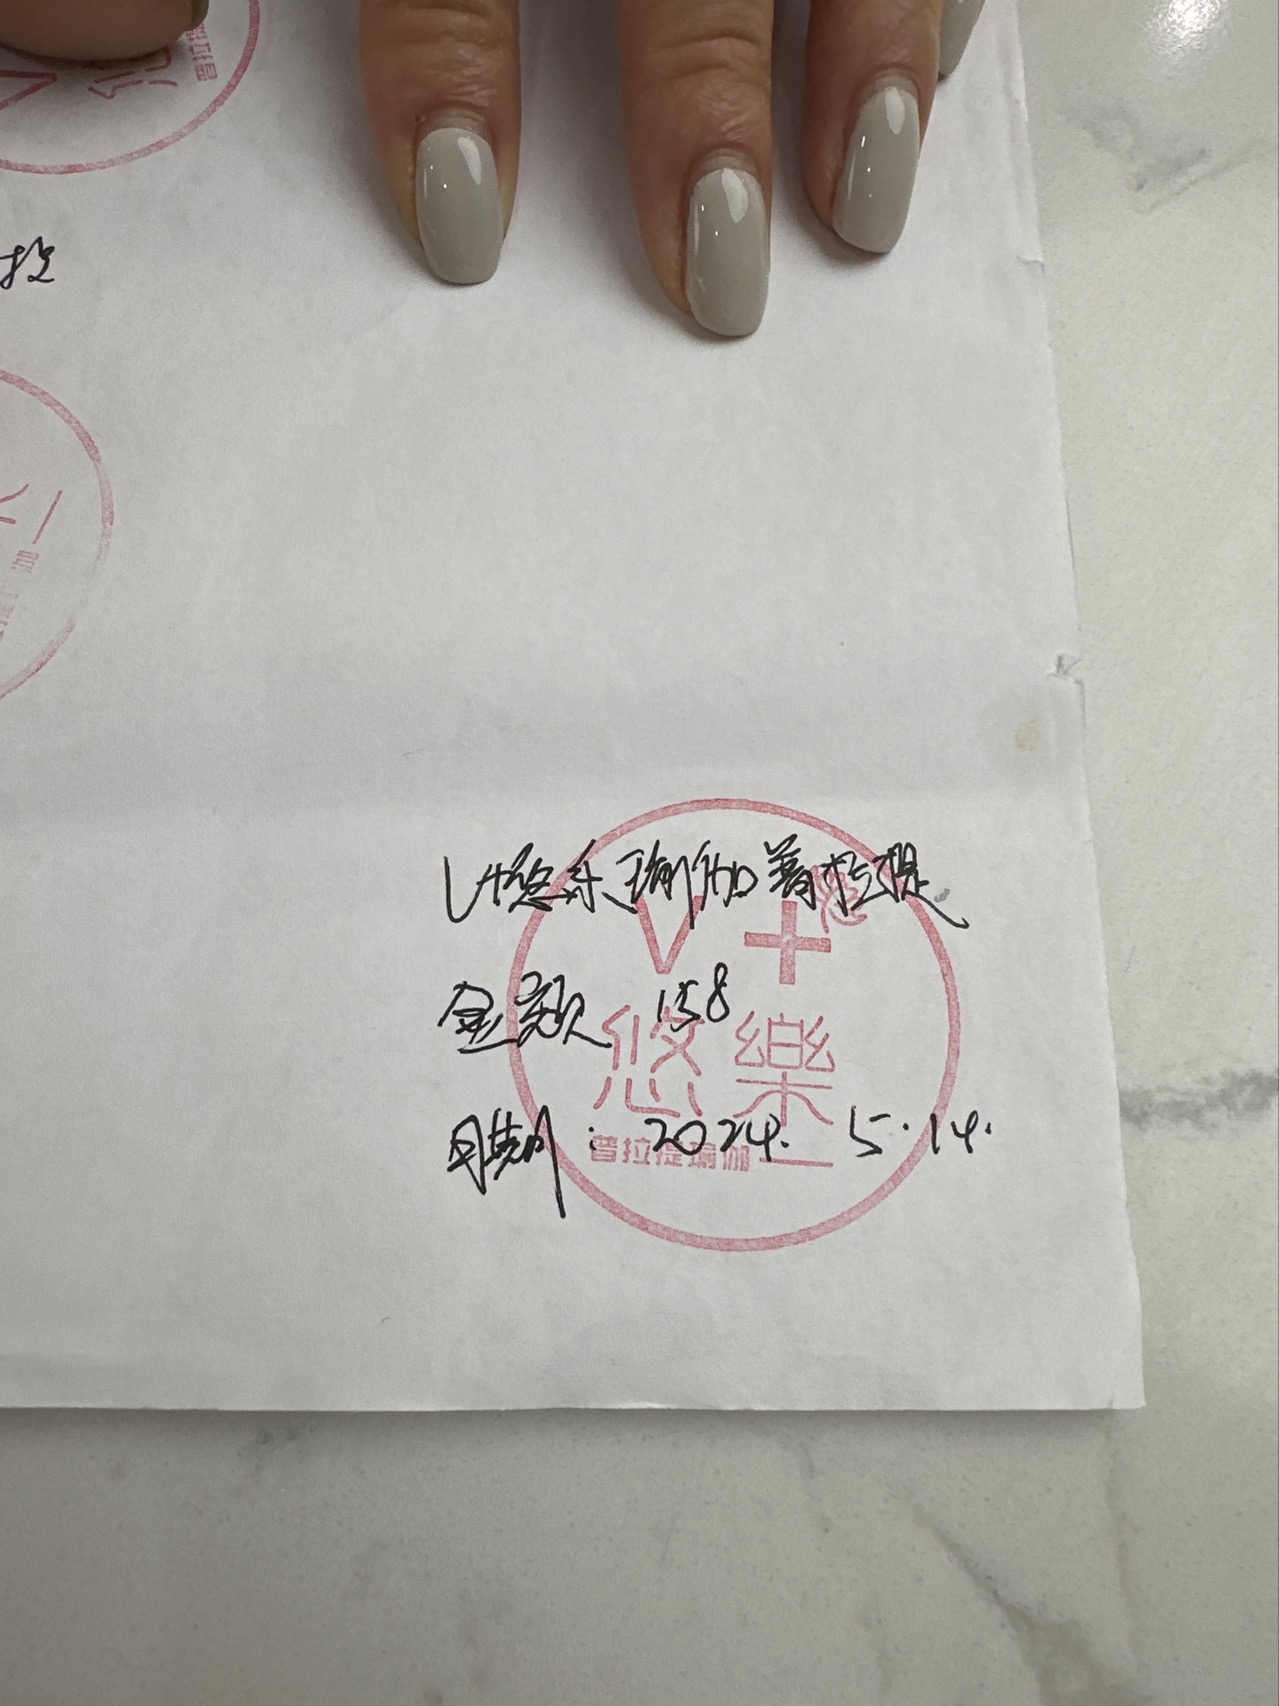 普拉提
投
V+悠乐瑜伽普拉提
金额 158
日期: 2024. 5.14.
V+
悠樂
普拉提瑜伽